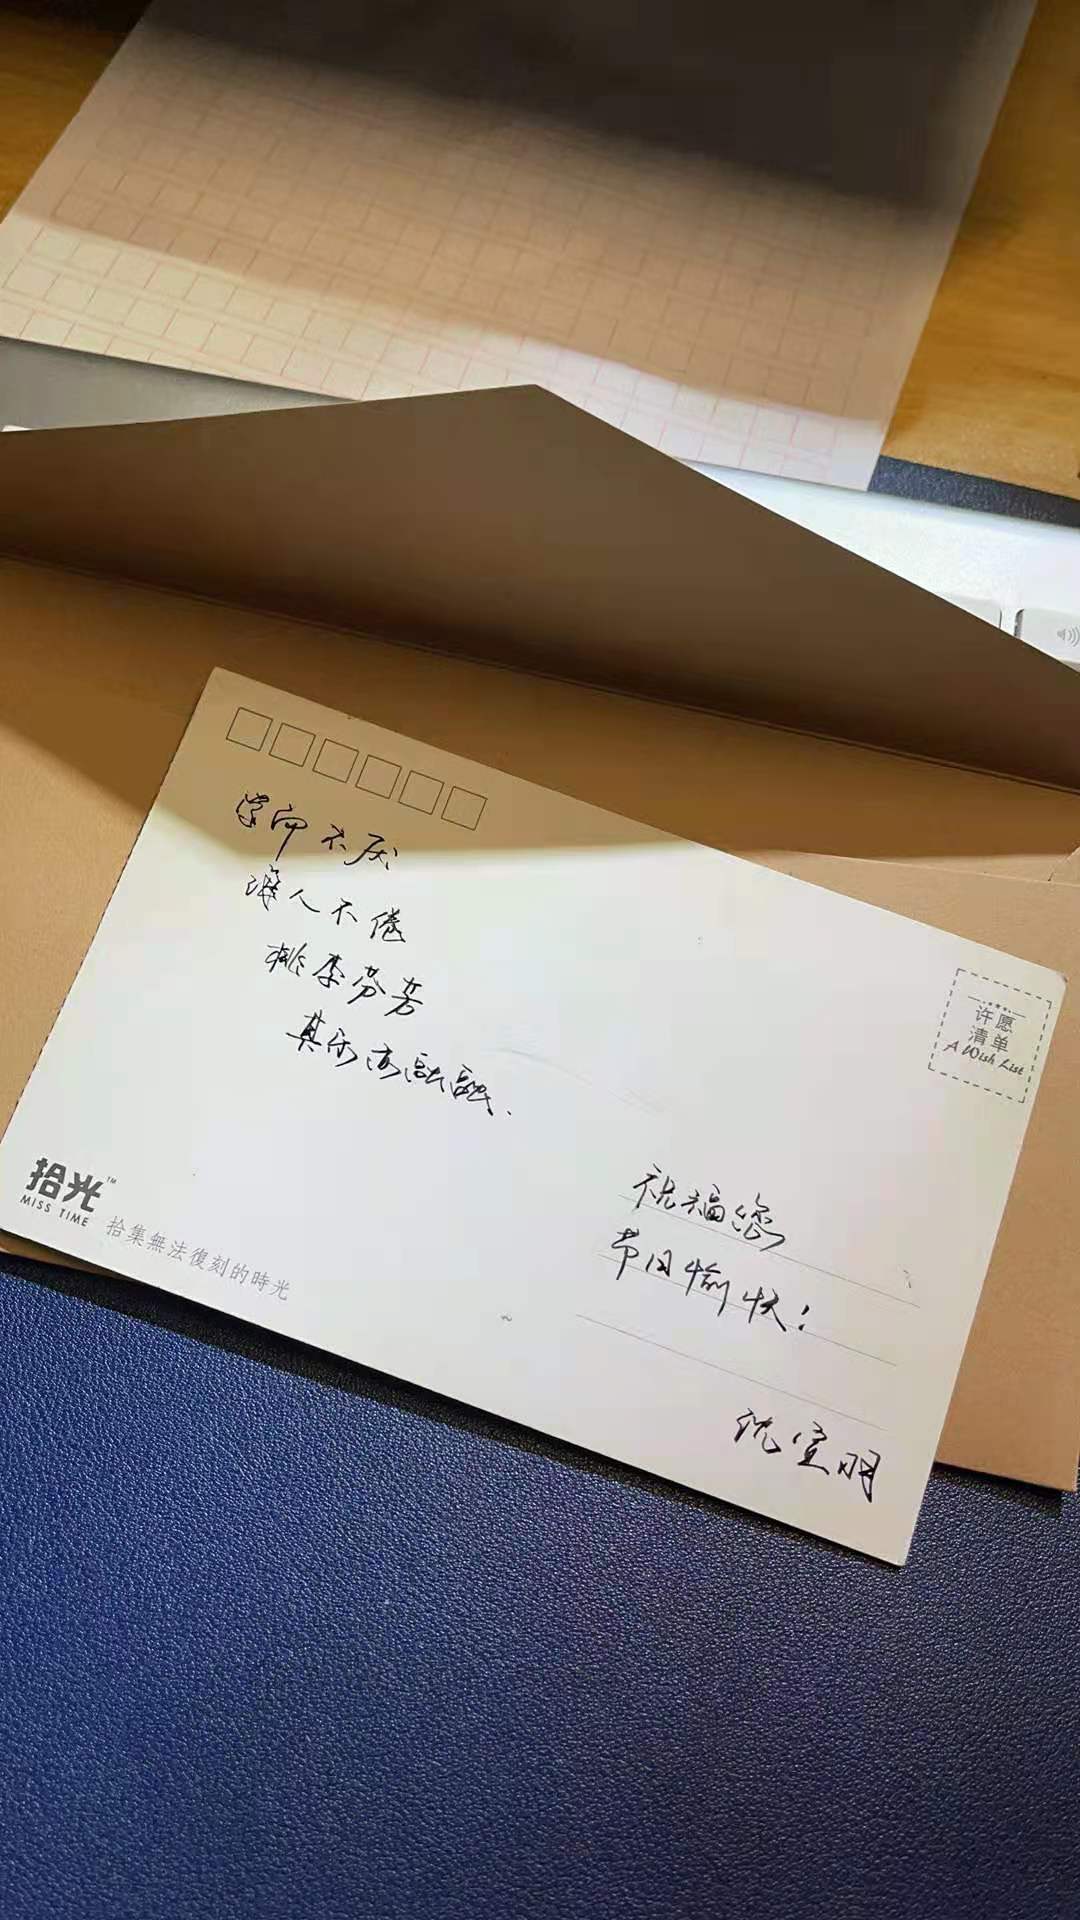 学而不厌
诲人不倦
桃李芬芳
其乐亦融融.
许愿
清单
A Wish List
祝福您
节日愉快!
沈宣明
拾光™
MISS TIME
拾集無法復刻的時光